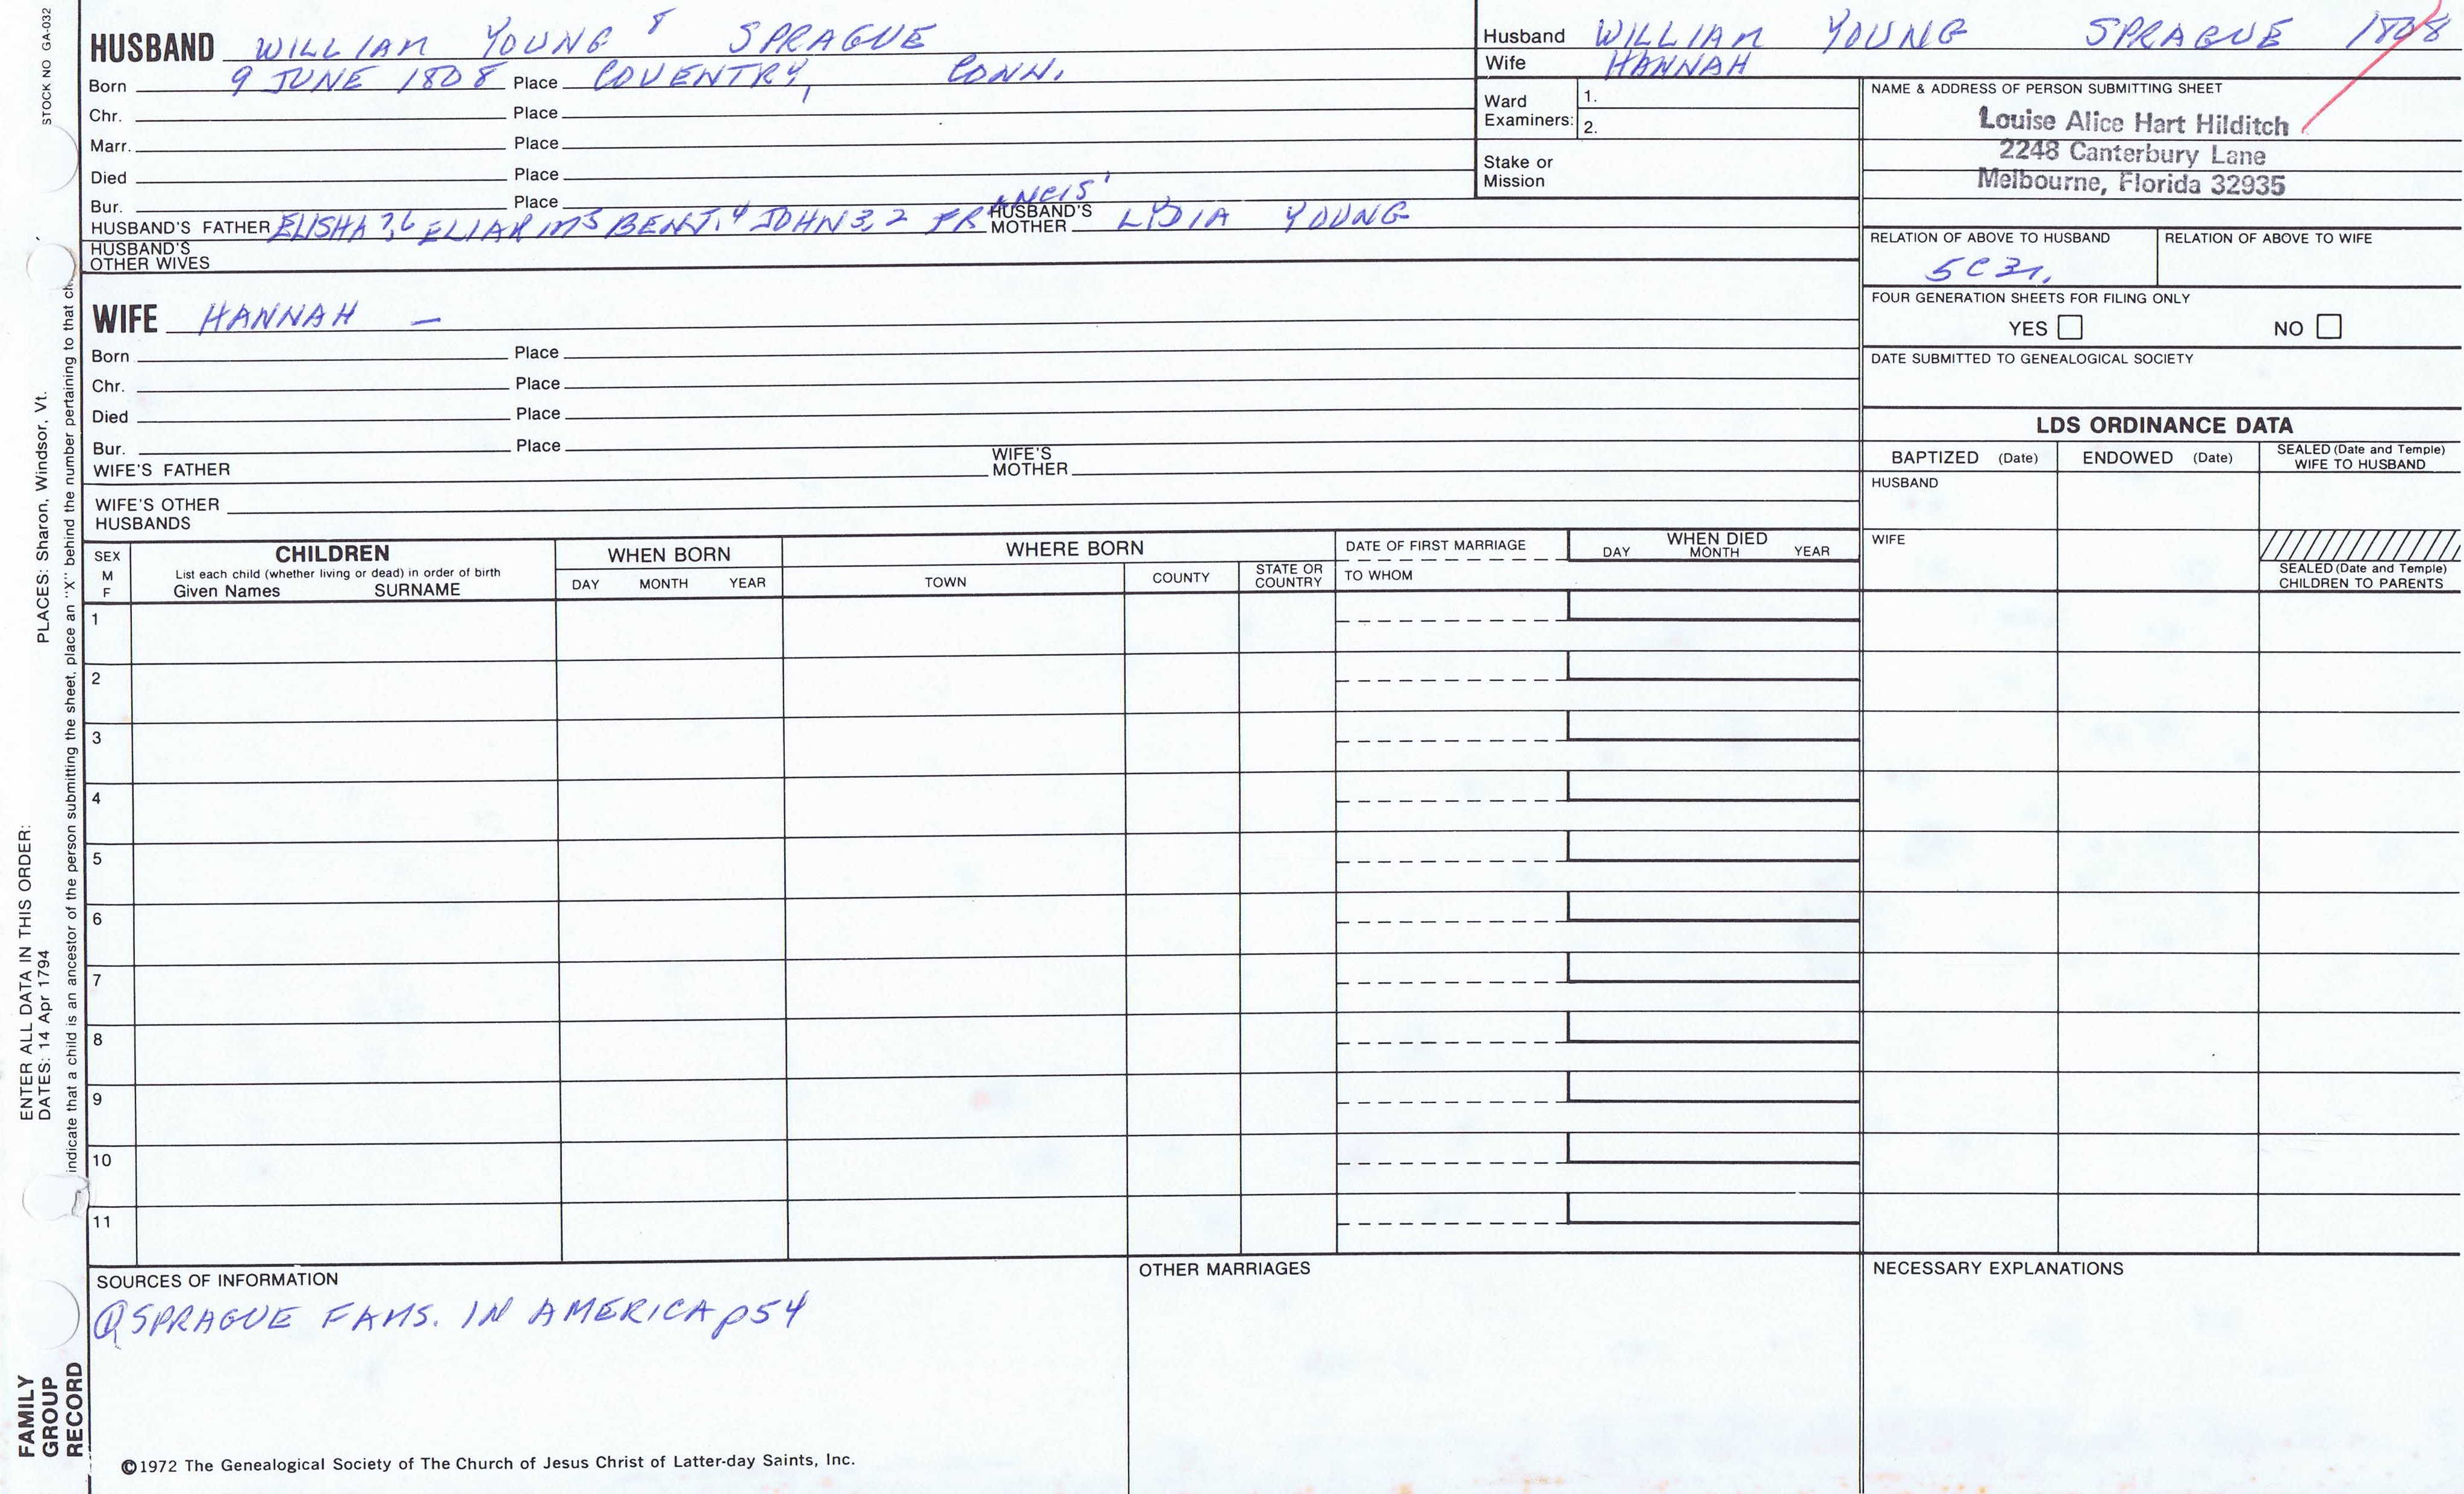 STOCK NO GA-032
HUSBAND WILLIAM YOUNG 8 SPRAGUE
Born 9 JUNE 1808 Place COVENTRY, CONN.
Chr. Place
Marr. Place
Died Place
Bur. Place
HUSBAND'S FATHER ELISHA 7,6 ELIAKIM5 BENJ.4 JOHN 3,2 FRANCIS1 HUSBAND'S MOTHER LYDIA YOUNG
HUSBAND'S OTHER WIVES
Husband WILLIAM YOUNG SPRAGUE 1808
Wife HANNAH
Ward Examiners: 1.
2.
Stake or Mission
NAME & ADDRESS OF PERSON SUBMITTING SHEET
Louise Alice Hart Hilditch
2248 Canterbury Lane
Melbourne, Florida 32935
RELATION OF ABOVE TO HUSBAND RELATION OF ABOVE TO WIFE
5C3r.
FOUR GENERATION SHEETS FOR FILING ONLY
YES NO
DATE SUBMITTED TO GENEALOGICAL SOCIETY
WIFE HANNAH —
Born Place
Chr. Place
Died Place
Bur. Place
WIFE'S FATHER WIFE'S MOTHER
WIFE'S OTHER HUSBANDS
LDS ORDINANCE DATA
BAPTIZED (Date) ENDOWED (Date) SEALED (Date and Temple) WIFE TO HUSBAND
HUSBAND
WIFE
SEALED (Date and Temple) CHILDREN TO PARENTS
SEX M F
CHILDREN
List each child (whether living or dead) in order of birth
Given Names SURNAME
WHEN BORN
DAY MONTH YEAR
WHERE BORN
TOWN COUNTY STATE OR COUNTRY
DATE OF FIRST MARRIAGE
TO WHOM
WHEN DIED
DAY MONTH YEAR
1
2
3
4
5
6
7
8
9
10
11
SOURCES OF INFORMATION
① SPRAGUE FAMS. IN AMERICA p54
OTHER MARRIAGES
NECESSARY EXPLANATIONS
©1972 The Genealogical Society of The Church of Jesus Christ of Latter-day Saints, Inc.
ENTER ALL DATA IN THIS ORDER:
DATES: 14 Apr 1794
PLACES: Sharon, Windsor, Vt.
indicate that a child is an ancestor of the person submitting the sheet, place an "X" behind the number pertaining to that
FAMILY GROUP RECORD